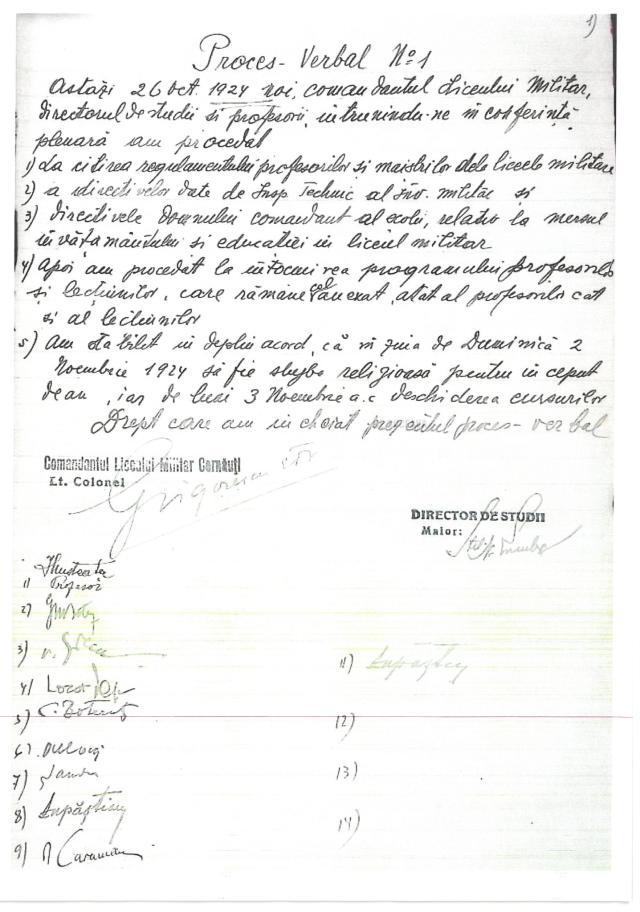 1)
Proces-Verbal No 1
Astăzi 26 Oct 1924 noi, comandantul Liceului Militar,
directorul de studii si profesorii, intrunindu-ne in conferință
plenară am procedat
1) La citirea regulamentului profesorilor și maistrilor dela liceele militare
2) a directivelor date de Insp. Technic al Inv. militar si
3) directivele Domnului comandant al scolii, relativ la mersul
învățământului si educatiei in liceul militar
4) Apoi am procedat la întocmirea programului profesorilor
și lecțiunilor, care rămâne anexat, atat al profesorilor cat
si al lectiunilor
5) Am stabilit in deplin acord, că in ziua de Duminică 2
Noembrie 1924 să fie slujba religioasă pentru inceput
de an, iar de luni 3 Noembrie a.c deschiderea cursurilor
Drept care am incheiat prezentul proces-verbal
Comandantul Liceului Militar Cernăuți
Lt. Colonel
Grigorescu
DIRECTOR DE STUDII
Maior:
1) Profesor
2)
3)
4)
5)
6)
7)
8)
9)
11)
12)
13)
14)